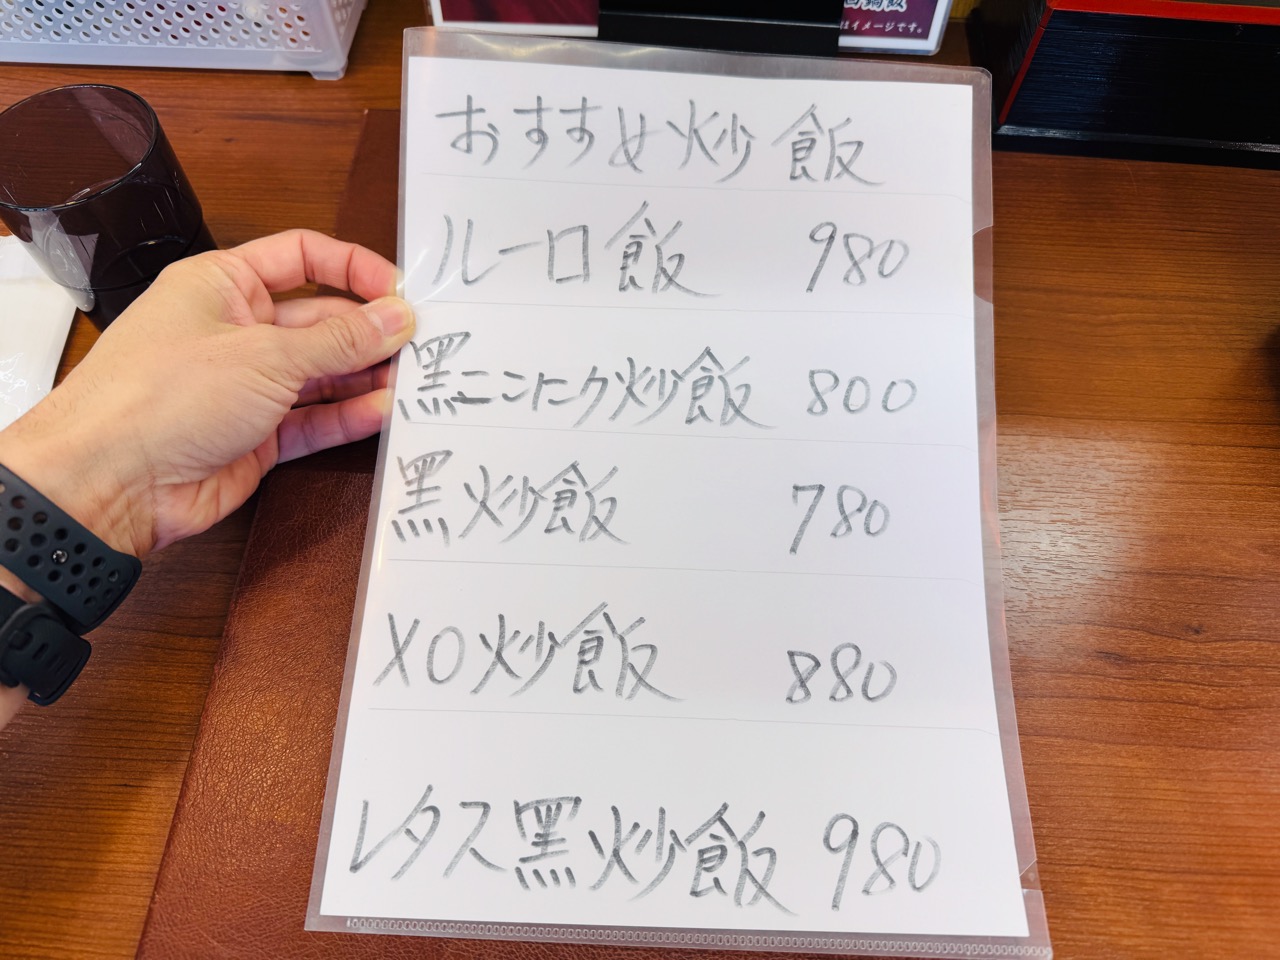 はイメージです。
おすすめ炒飯
ルーロ飯 980
黒ニンニク炒飯 800
黒炒飯 780
XO炒飯 880
レタス黒炒飯 980